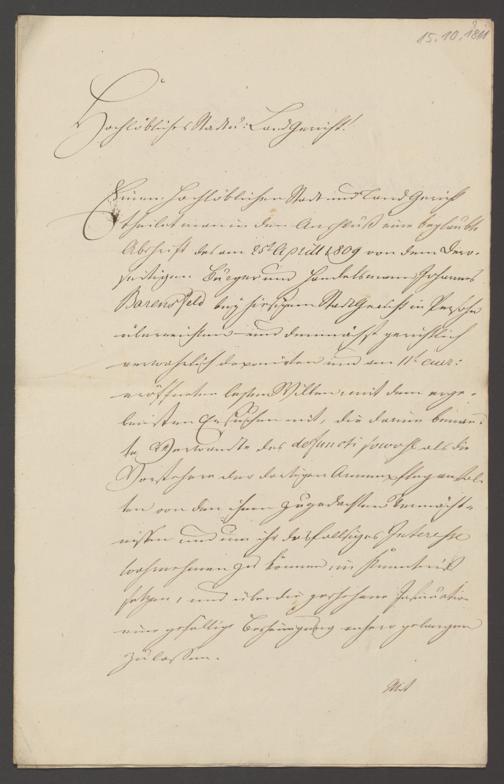 15.10.1811
Hochlöbliches Stadt u: Land Gericht!
Einem Hochlöblichen Stadt und Land Gericht
theilet man in dem Anschluß eine beglaubte
Abschrift des am 25t April 1809 von dem
Bürger und Handelsmann Johannes
Barensfeld bey hiesigem Stadt Gericht in Person
überreichten und demnächst gerichtlich
verwahrlich deponirten und am 11t cur:
eröffneten letzten Willen, mit dem erge-
bensten Ersuchen mit, die darin benan-
te Verwandte des defuncti sowohl als die
Vorstehere der dortigen Armenpfleganstal-
ten von den ihnen zugedachten Vermächt-
nissen und um ihr desfallsiges Interesse
wahrnehmen zu können, in Kenntniß
setzen, und über die geschehene Insinuation
eine gefällige Bescheinigung anhero gelangen
zu lassen.
Mit